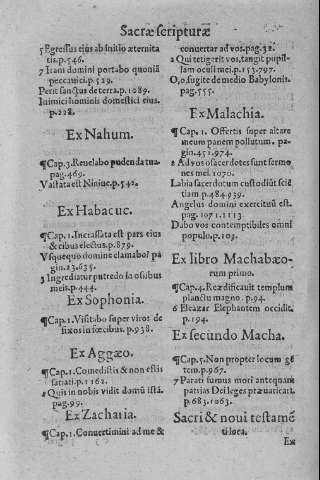 Sacræ scripturæ
5 Egressus eius ab initio æternita
tis. p. 546.
7 Iram domini portabo quoniã
peccaui. p. 529.
Perit sanctus de terra. p. 1089.
Inimici hominis domestici eius.
p. 228.
Ex Nahum.
¶Cap. 3. Reuelabo pudenda tua.
pag. 469.
Vastata est Niniue. p. 542.
Ex Habacuc.
¶Cap. 1. Incrassata est pars eius
& cibus electus. p. 879.
Vsquequo domine clamabo? pa
gin. 23. 635.
3 Ingrediatur putredo ĩ ossibus
meis. p. 444.
Ex Sophonia.
¶Cap. 1. Visitabo super viros de
fixos in fœcibus. p. 938.
Ex Aggæo.
¶Cap. 1. Comedistis & non estis
satiati. p. 1162.
2 Quis in nobis vidit domũ istã.
pag. 99.
Ex Zacharia.
¶Cap. 1. Conuertimini ad me &
conuertar ad vos. pag. 32.
2 Qui tetigerit vos, tangit pupil-
lam oculi mei. p. 153. 797.
O, o fugite de medio Babylonis.
pag. 755.
Ex Malachia.
¶Cap. 1. Offertis super altare
meum panem pollutum. pa-
gin. 451. 974.
2 Ad vos o sacerdotes sunt sermo
nes mei. 1070.
Labia sacerdotum custodiũt sciẽ
tiam p. 484. 939.
Angelus domini exercituũ est.
pag. 1071. 1113
Dabo vos contemptibiles omni
populo. p. 103.
Ex libro Machabæo-
rum primo.
¶Cap. 4. Reædificauit templum
planctu magno. p. 94.
6 Eleazar Elephantem occidit.
p. 194.
Ex secundo Macha.
¶Cap. 5. Non propter locum gẽ
tem. p. 967.
7 Parati sumus mori antequam
patrias Dei leges præuaricari.
p. 683. 1063.
Sacri & noui testamẽ
ti loca.
Ex